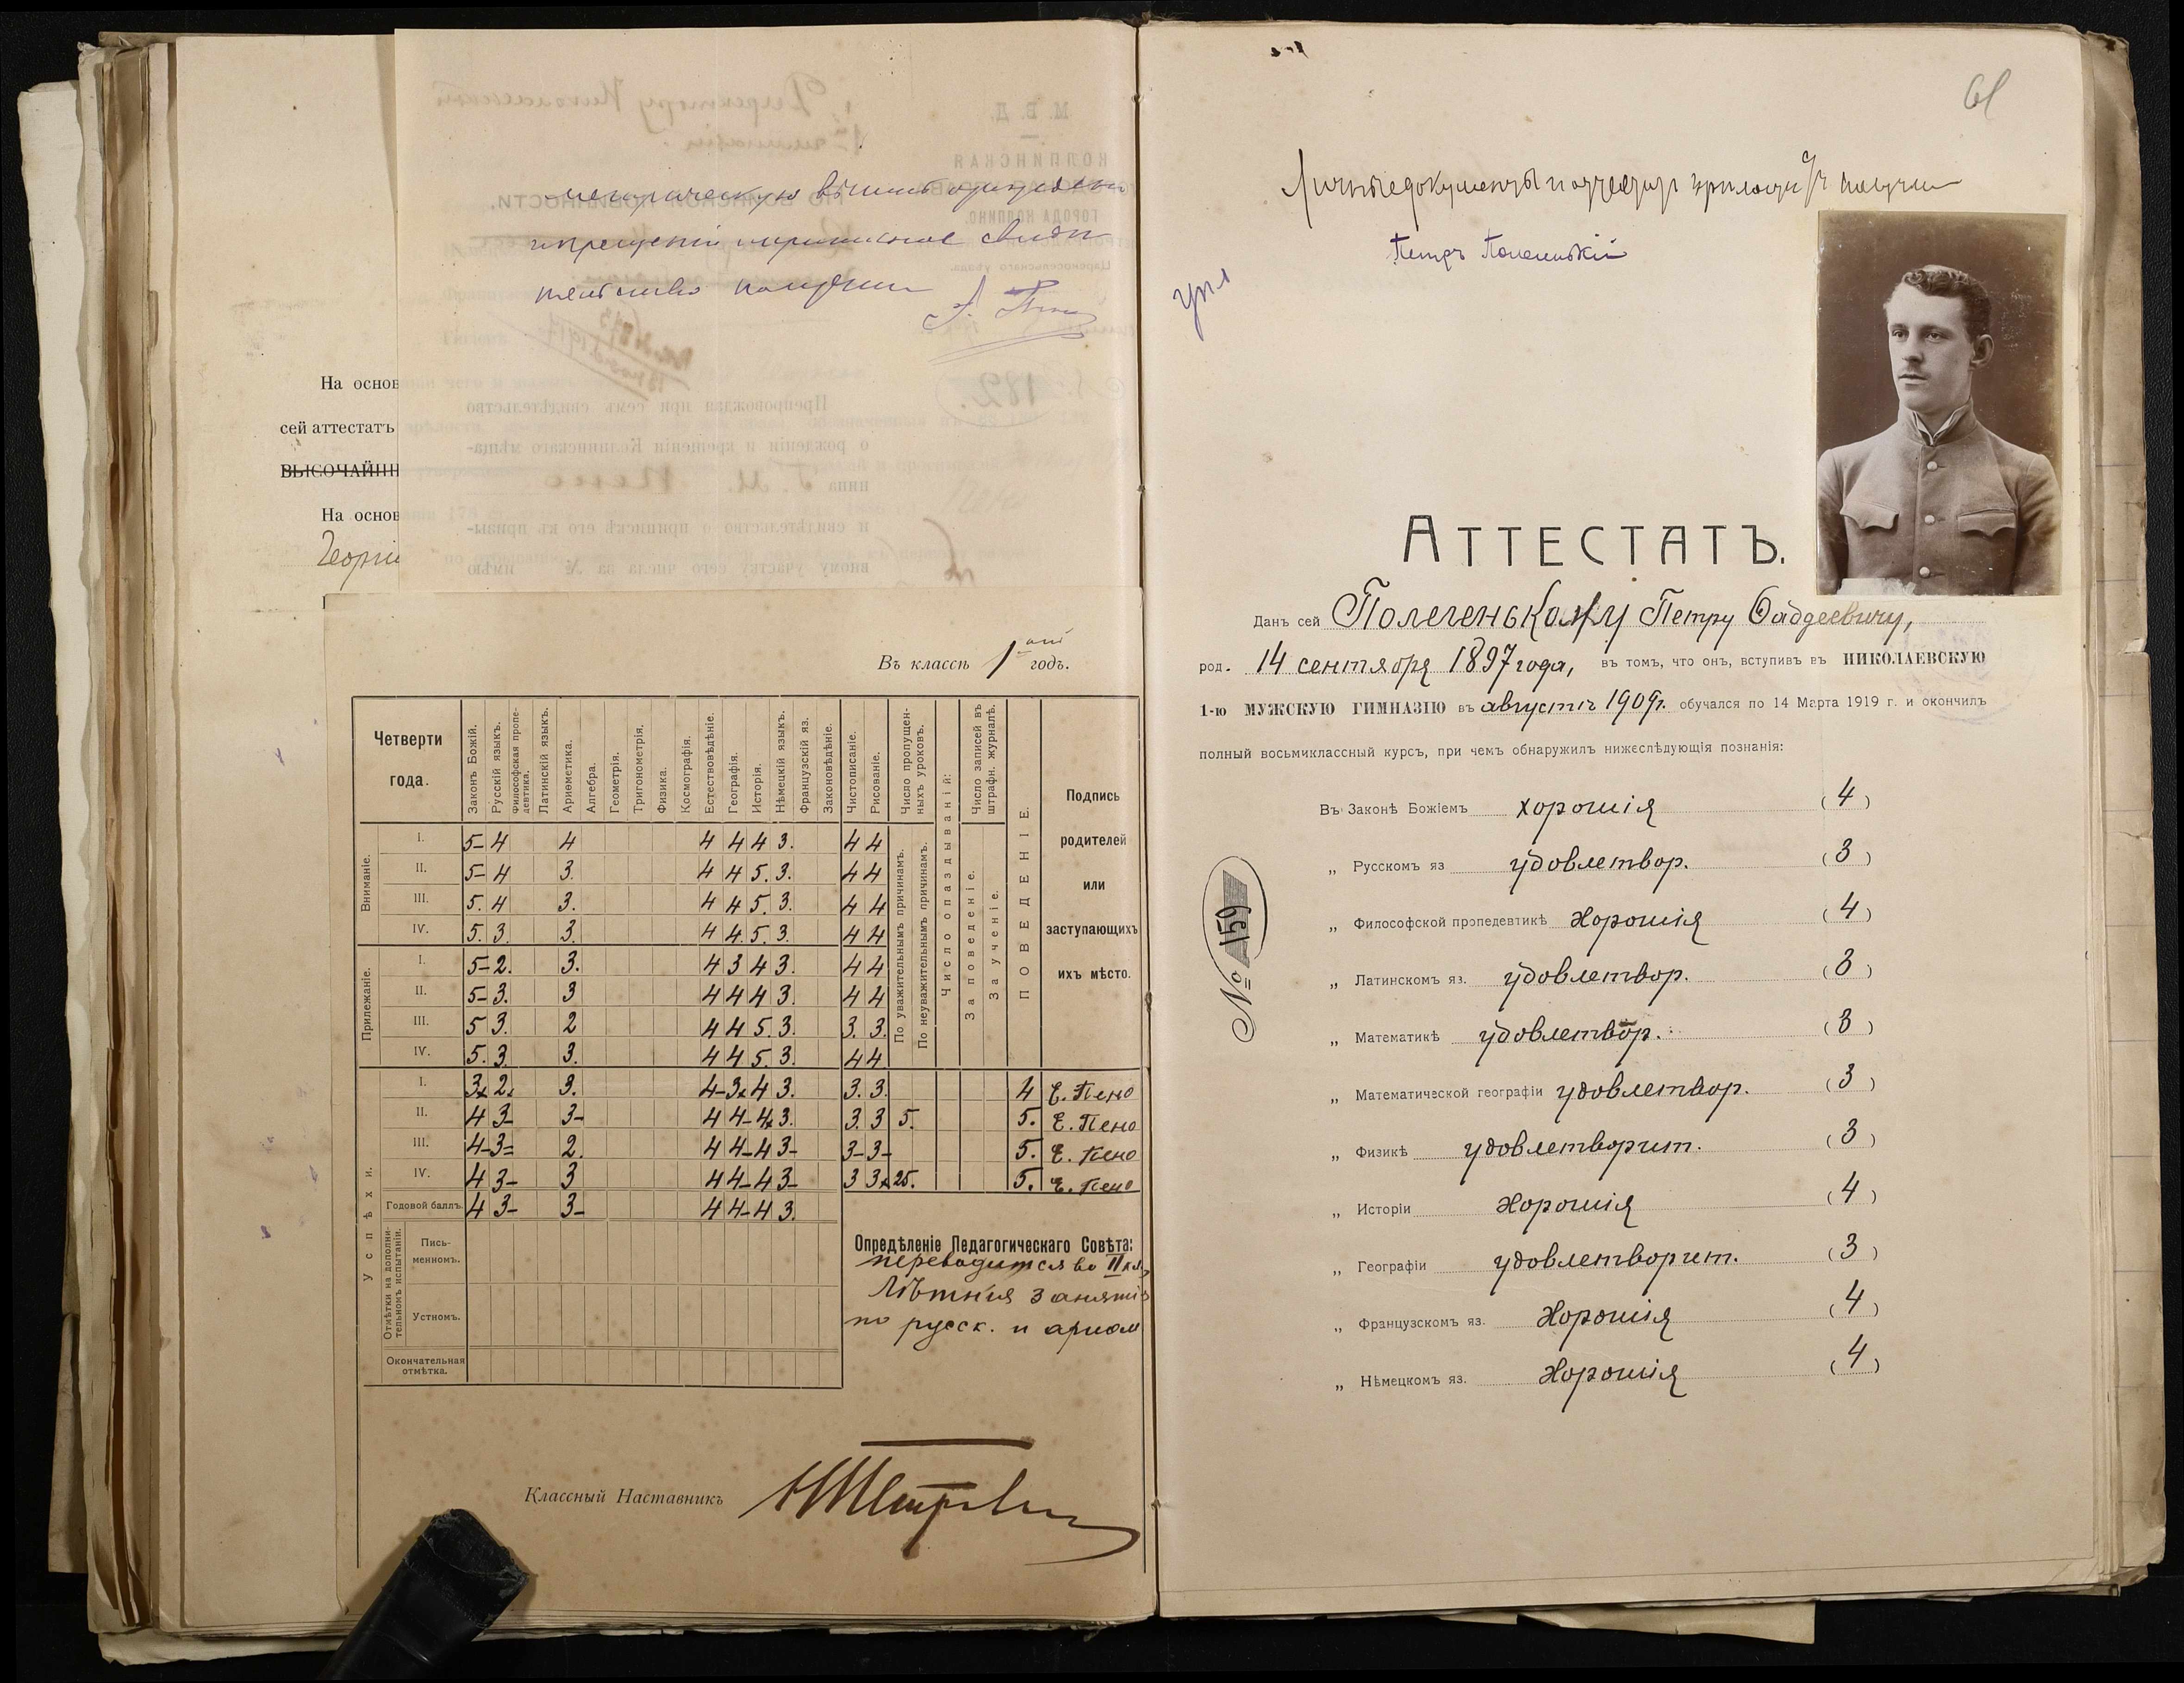 На основ
сей аттестатъ
ВЫСОЧАЙШ
На основ
Георгіе
получилъ
Въ классѣ 1 ый годъ.
Четверти года.
Законъ Божій.
Русскій языкъ.
Философская пропедевтика.
Латинскій языкъ.
Ариѳметика.
Алгебра.
Геометрія.
Тригонометрія.
Физика.
Космографія.
Естествовѣдѣніе.
Географія.
Исторія.
Нѣмецкій языкъ.
Французскій яз.
Законовѣдѣніе.
Чистописаніе.
Рисованіе.
Число пропущенныхъ уроковъ.
По уважительнымъ причинамъ.
По неуважительнымъ причинамъ.
Число опаздываній:
Число записей въ штрафн. журналѣ.
За поведеніе.
За ученіе.
ПОВЕДЕНІЕ.
Подпись родителей или заступающихъ ихъ мѣсто.
Вниманіе.
I. 5- 4 4 4 4 4 3. 4 4
II. 5- 4 3. 4 4 5. 3. 4 4
III. 5. 4 3. 4 4 5. 3. 4 4
IV. 5. 3. 3. 4 4. 5. 3. 4 4
Прилежаніе.
I. 5- 2. 3. 4 3 4 3. 4 4
II. 5- 3. 3 4 4 4 3. 4 4
III. 5 3. 2 4 4 5. 3. 3. 3.
IV. 5. 3 3. 4 4 5. 3. 4 4
Успѣхи.
I. 3 2. 3. 4- 3 4 3. 3. 3. 4 Е. Пено
II. 4 3- 3- 4 4- 4 3. 3. 3 5. 5. Е. Пено
III. 4- 3= 2. 4 4- 4 3- 3- 3- 5. Е. Пено
IV. 4 3- 3 4 4- 4 3- 3 3 25. 5. Е. Пено
Годовой баллъ. 4 3- 3- 4 4- 4 3.
Отмѣтки на дополнительномъ испытаніи.
Письменномъ.
Устномъ.
Окончательная отмѣтка.
Опредѣленіе Педагогическаго Совѣта:
переводится во II кл.
Лѣтнія занятія
по русск. и ариѳм
Классный Наставникъ
61
Личные документы и
получилъ
Петръ Полегенькій
АТТЕСТАТЪ.
Данъ сей Полегенькому Петру Фаддеевичу,
род. 14 сентября 1897 года, въ томъ, что онъ, вступивъ въ НИКОЛАЕВСКУЮ
1-ю МУЖСКУЮ ГИМНАЗІЮ въ августѣ 1909г. обучался по 14 Марта 1919 г. и окончилъ
полный восьмиклассный курсъ, при чемъ обнаружилъ нижеслѣдующія познанія:
Въ Законѣ Божіемъ хорошія (4)
„ Русскомъ яз удовлетвор. (3)
„ Философской пропедевтикѣ Хорошія (4)
„ Латинскомъ яз. удовлетвор. (3)
„ Математикѣ удовлетвор. (3)
„ Математической географіи удовлетвор. (3)
„ Физикѣ удовлетворит. (3)
„ Исторіи Хорошія (4)
„ Географіи удовлетворит. (3)
„ Французскомъ яз. Хорошія (4)
„ Нѣмецкомъ яз. Хорошія (4)
№ 159